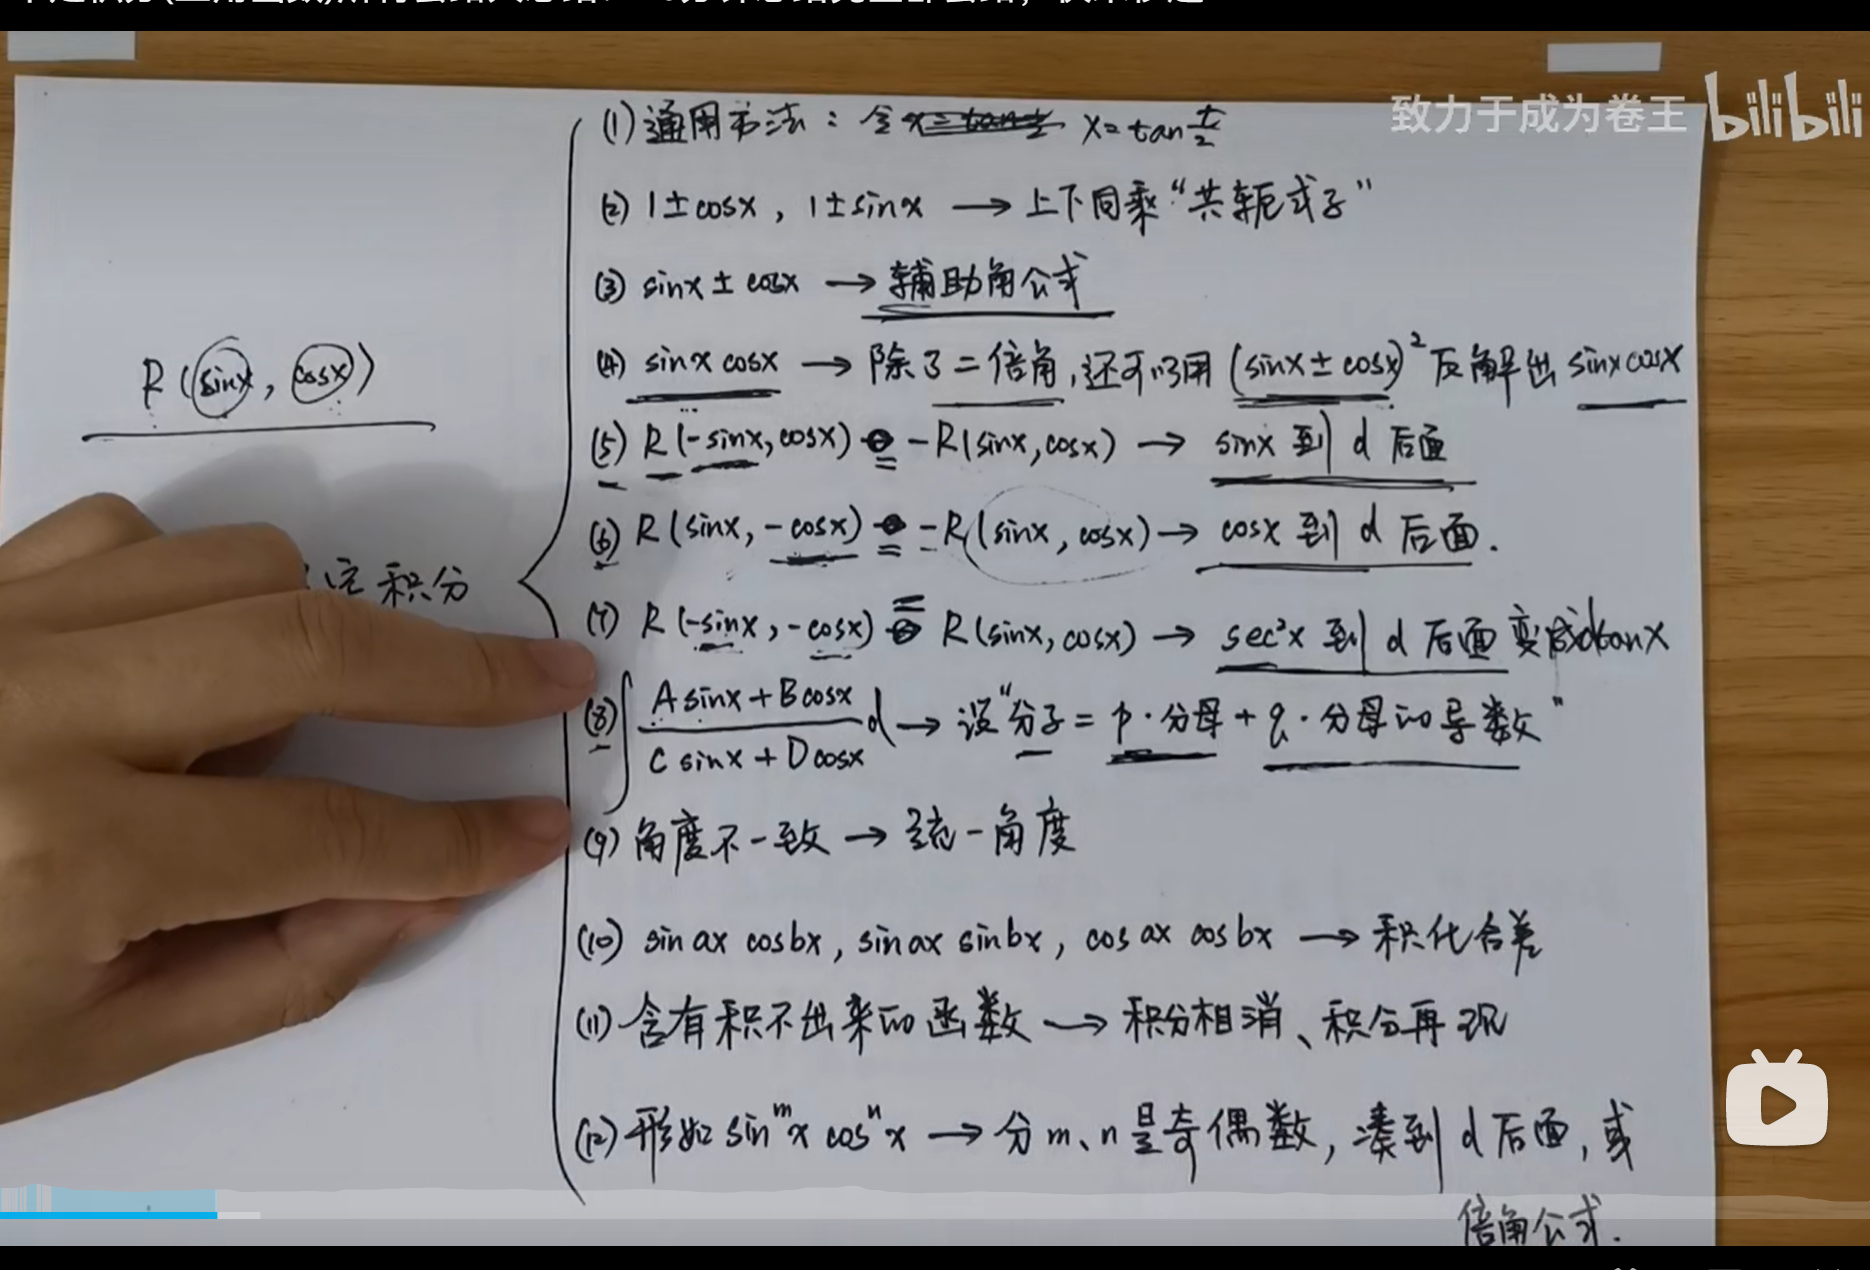 致力于成为卷王 bilibili
(1) 通用方法：令 x=tan t/2
(2) 1±cosx，1±sinx → 上下同乘“共轭式子”
(3) sinx ± cosx → 辅助角公式
(4) sinx cosx → 除了二倍角，还可以用 (sinx ± cosx)² 反解出 sinx cosx
R (sinx, cosx)
(5) R (-sinx, cosx) = -R(sinx, cosx) → sinx 到 d 后面
(6) R (sinx, -cosx) = -R (sinx, cosx) → cosx 到 d 后面.
定积分
(7) R (-sinx, -cosx) = R (sinx, cosx) → sec²x 到 d 后面 变成dtanx
(8) ∫ (A sinx + B cosx)/(C sinx + D cosx) d → 设“分子 = p·分母 + q·分母的导数”
(9) 角度不一致 → 统一角度
(10) sin ax cos bx, sin ax sin bx, cos ax cos bx → 积化合差
(11) 含有积不出来的函数 → 积分相消、积分再现
(12) 形如 sin^m x cos^n x → 分 m、n 是奇偶数，凑到 d 后面，或
倍角公式.